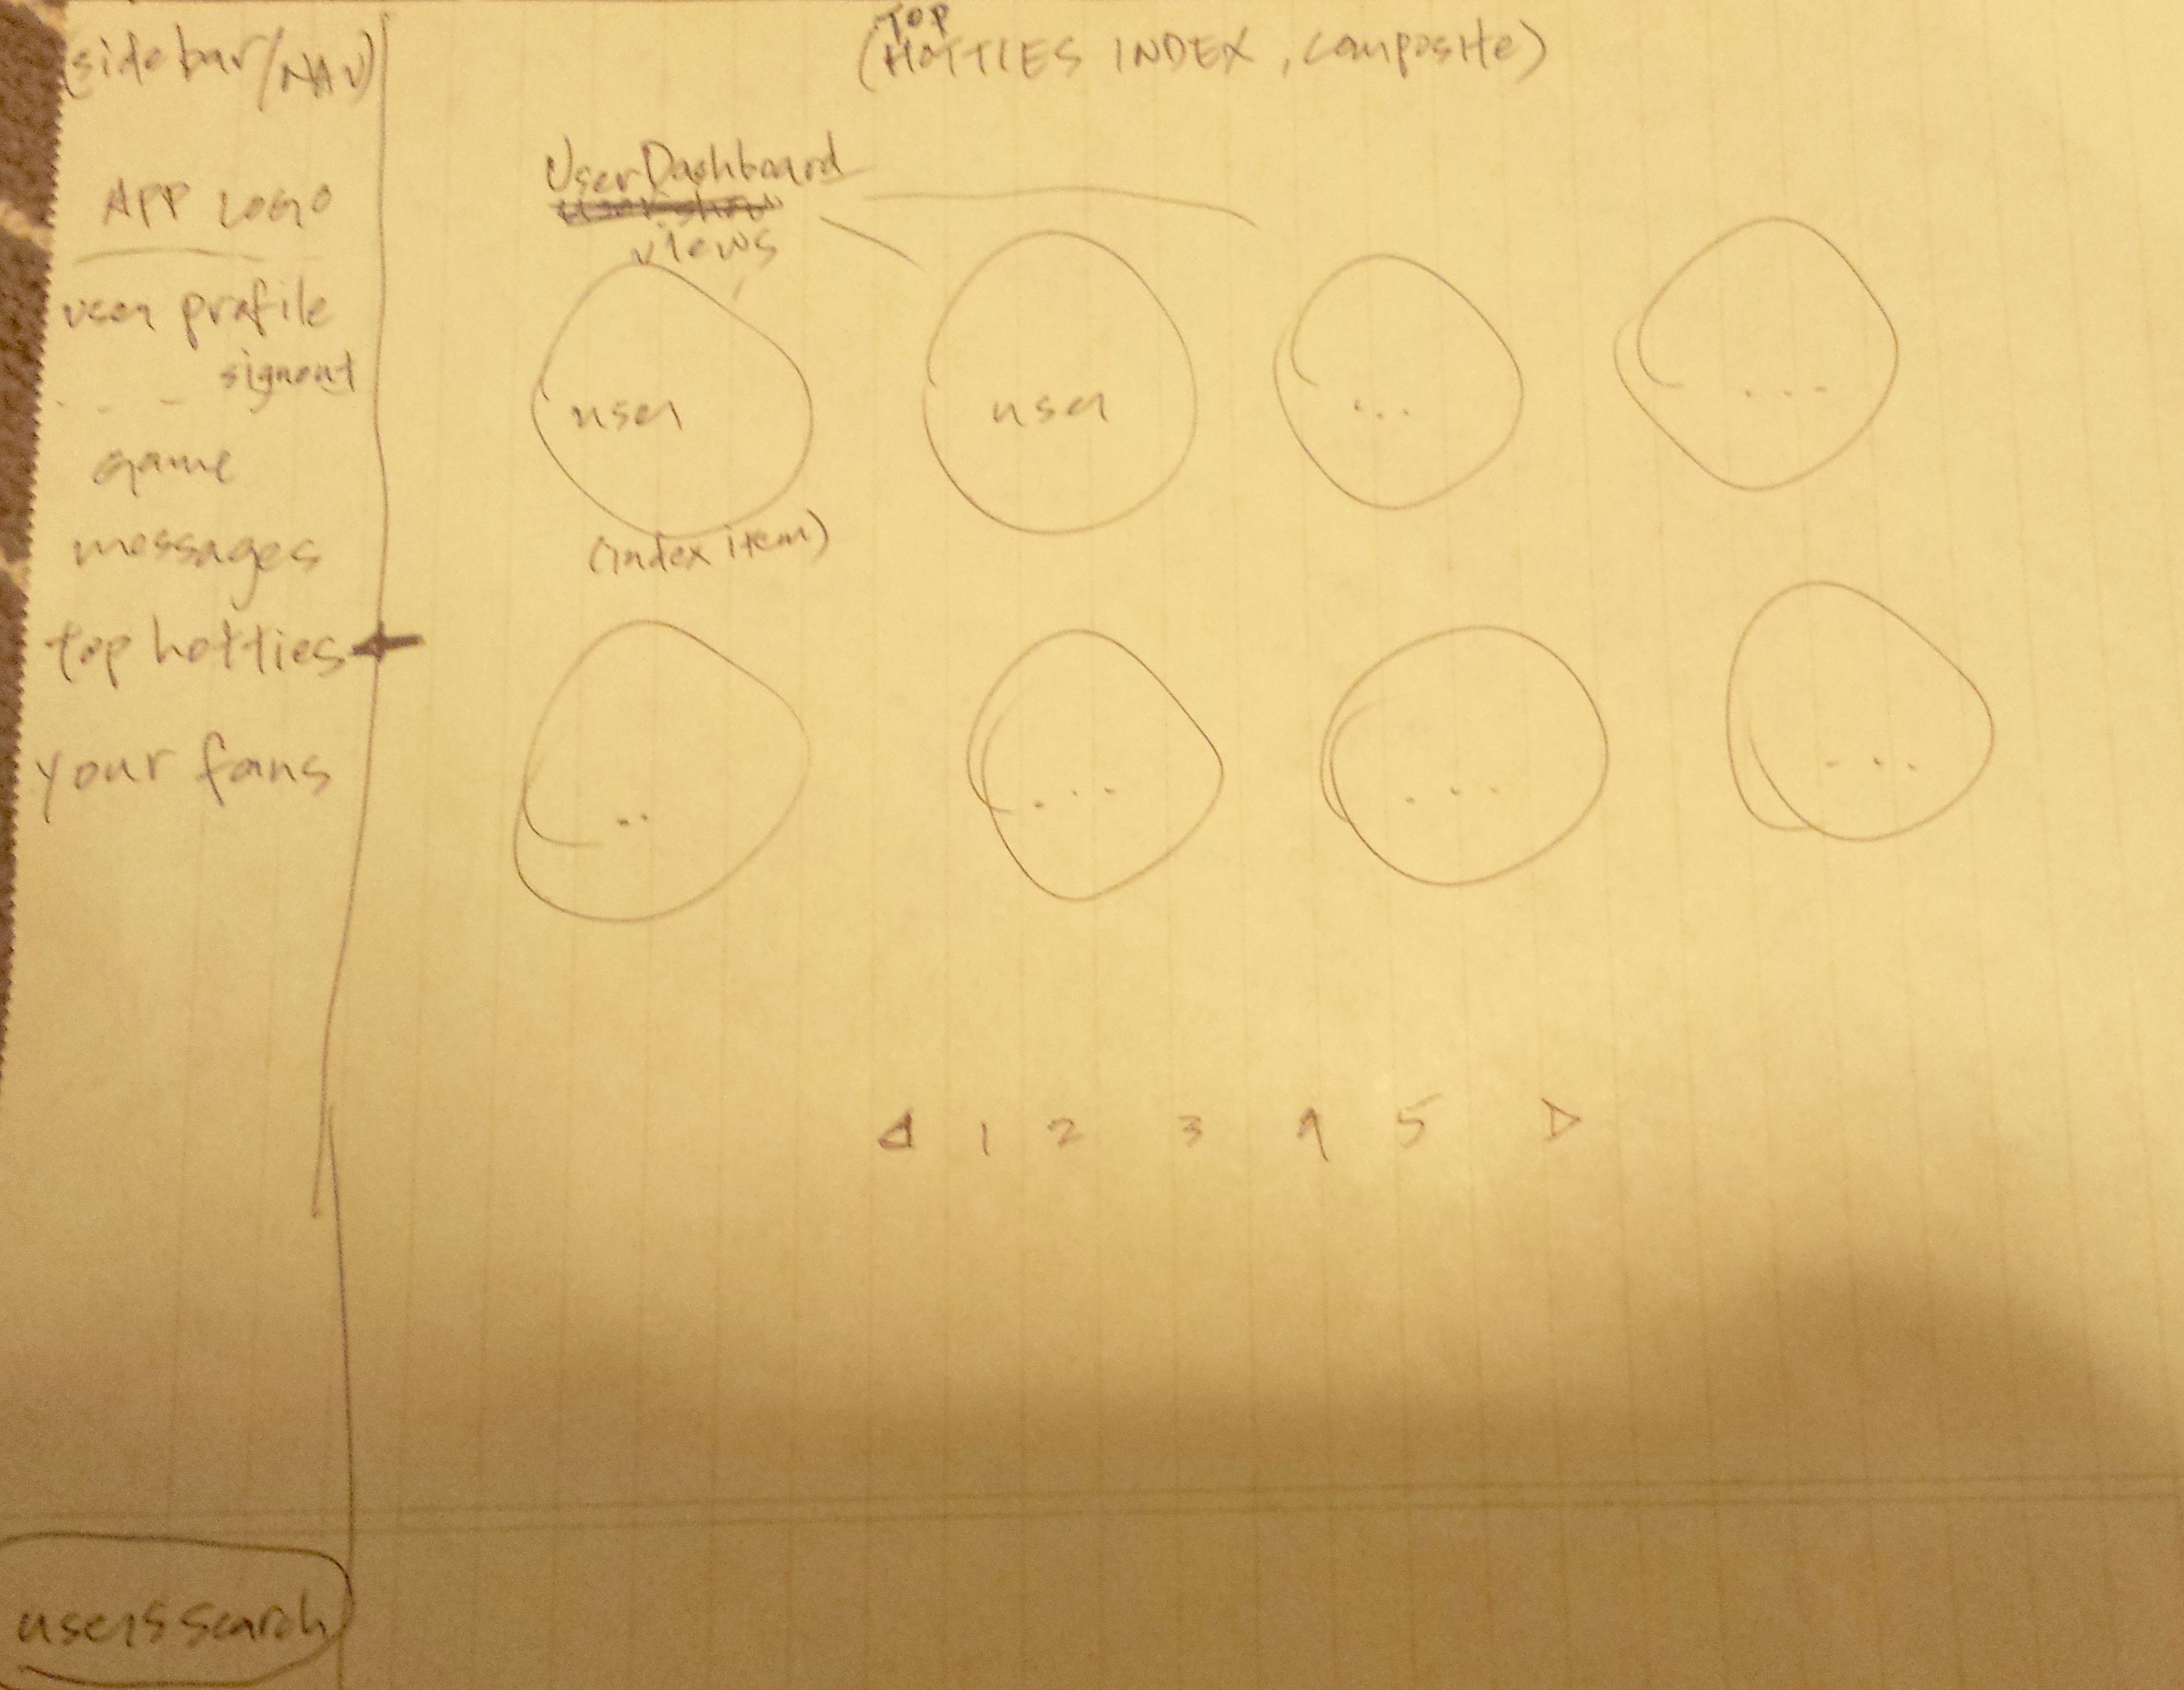 (sidebar/NAV)
APP LOGO
user profile
signout
game
messages
top hotties
your fans
users search
TOP
(HOTTIES INDEX, composite)
UserDashboard
views
user
user
...
...
(index item)
..
...
...
...
1 2 3 4 5